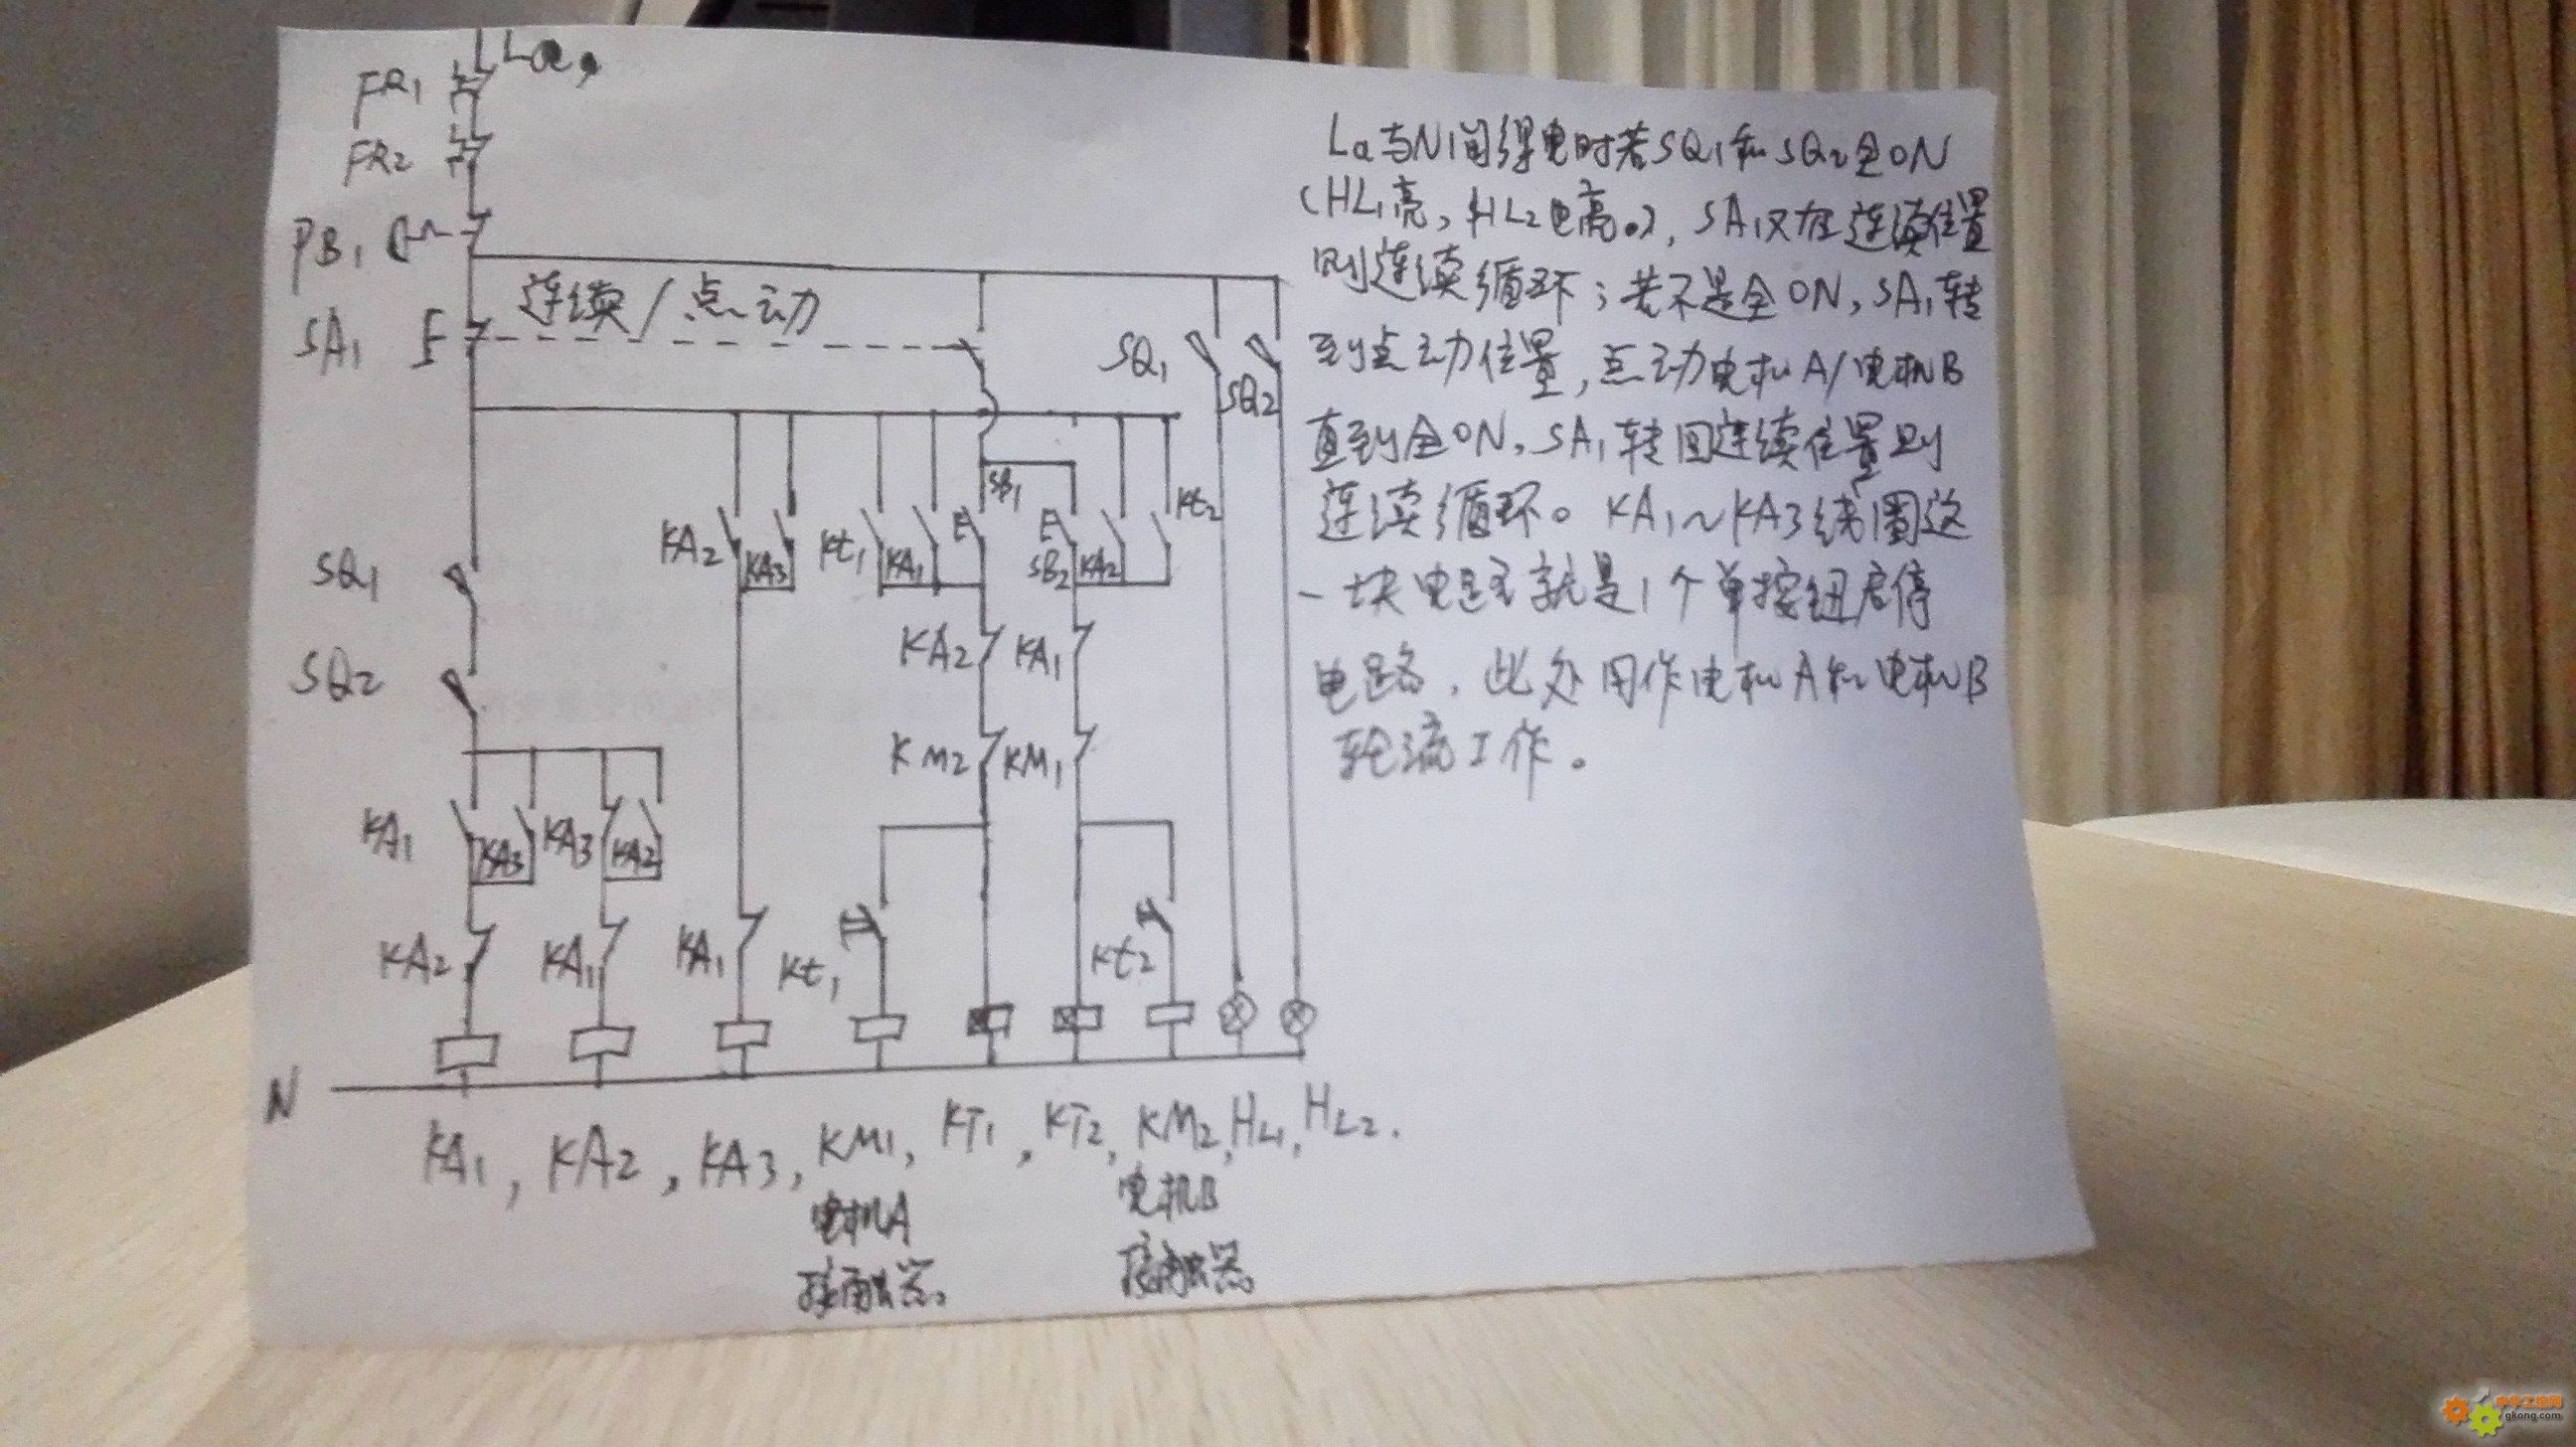 La
FR1
FR2
PB1
SA1
连续/点动
SQ1
SQ2
SB1
Kt2
KA2
KA3
Kt1
KA1
SB2
KA2
SQ1
SQ2
KA2
KA1
KM2
KM1
KA1
KA3
KA3
KA2
KA2
KA1
KA1
Kt1
Kt2
N
KA1, KA2, KA3, KM1, KT1, KT2, KM2, HL1, HL2.
电机A
接触器
电机B
接触器
La与N间得电时若SQ1和SQ2全ON
(HL1亮, HL2也亮。), SA1又在连续位置
则连续循环; 若不是全ON, SA1转
到点动位置, 点动电机A/电机B
直到全ON, SA1转回连续位置则
连续循环。KA1~KA3线圈这
一块电路就是1个单按钮启停
电路, 此处用作电机A和电机B
轮流工作。
中华工控网
gkong.com